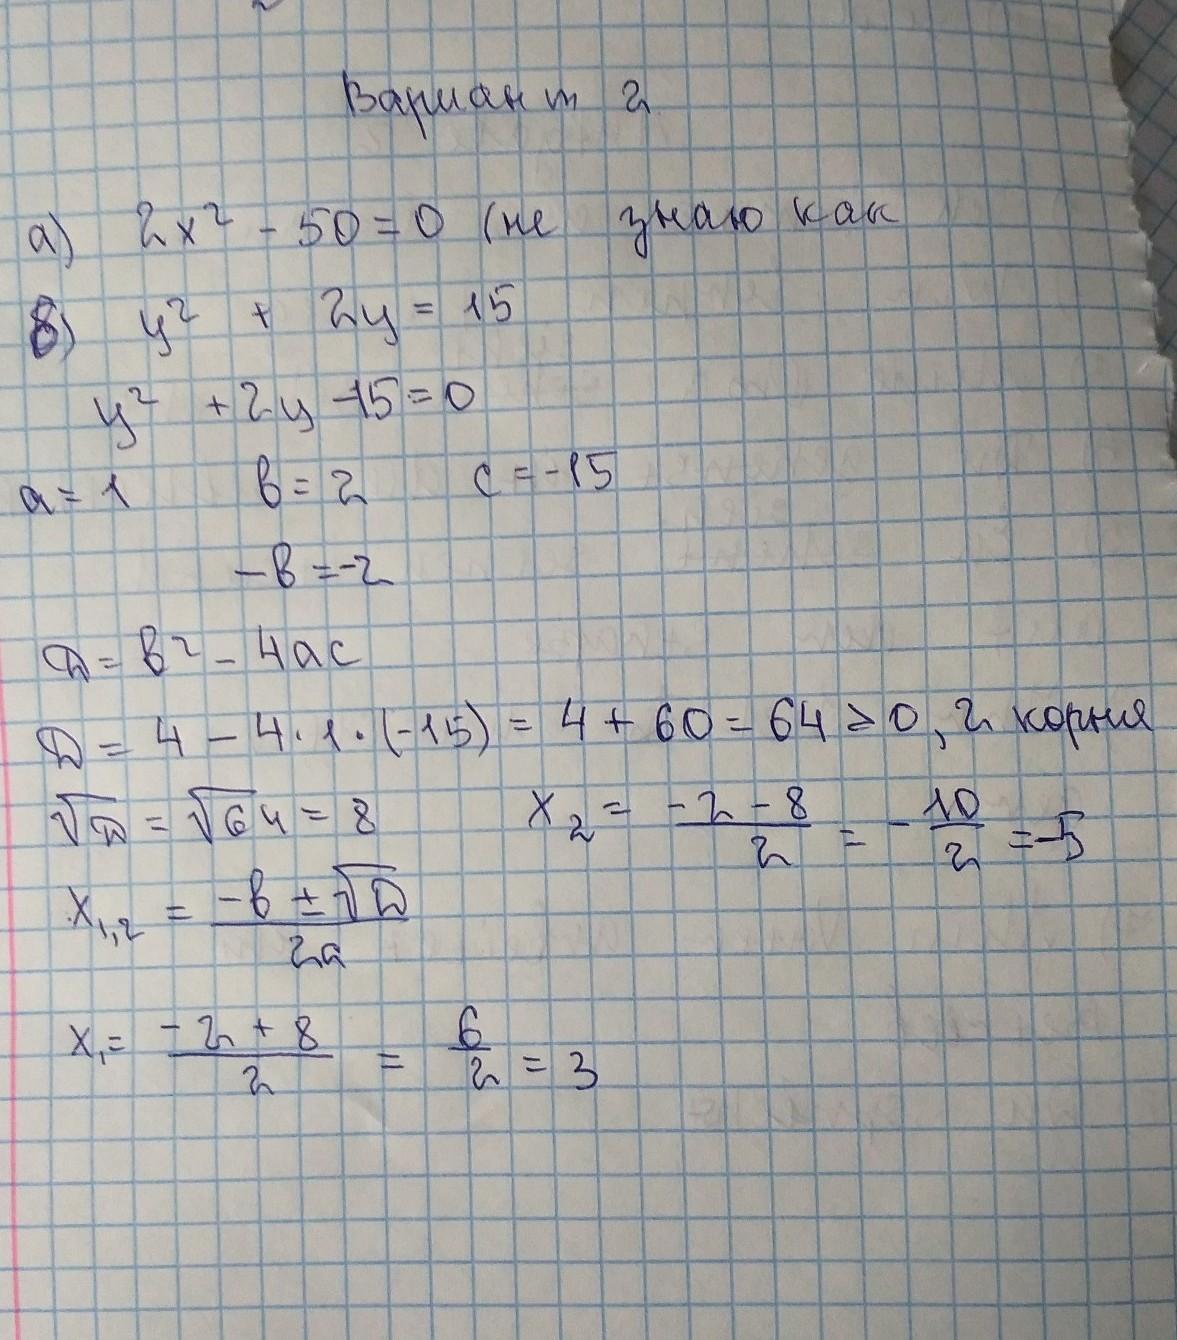 Вариант 2
а) 2x² - 50 = 0 (не знаю как
б) y² + 2y = 15
y² + 2y - 15 = 0
a = 1 b = 2 c = -15
-b = -2
D = b² - 4ac
D = 4 - 4·1·(-15) = 4 + 60 = 64 ≥ 0, 2 корня
√D = √64 = 8 x₂ = (-2 - 8)/2 = -10/2 = -5
x₁,₂ = (-b ± √D)/2a
x₁ = (-2 + 8)/2 = 6/2 = 3